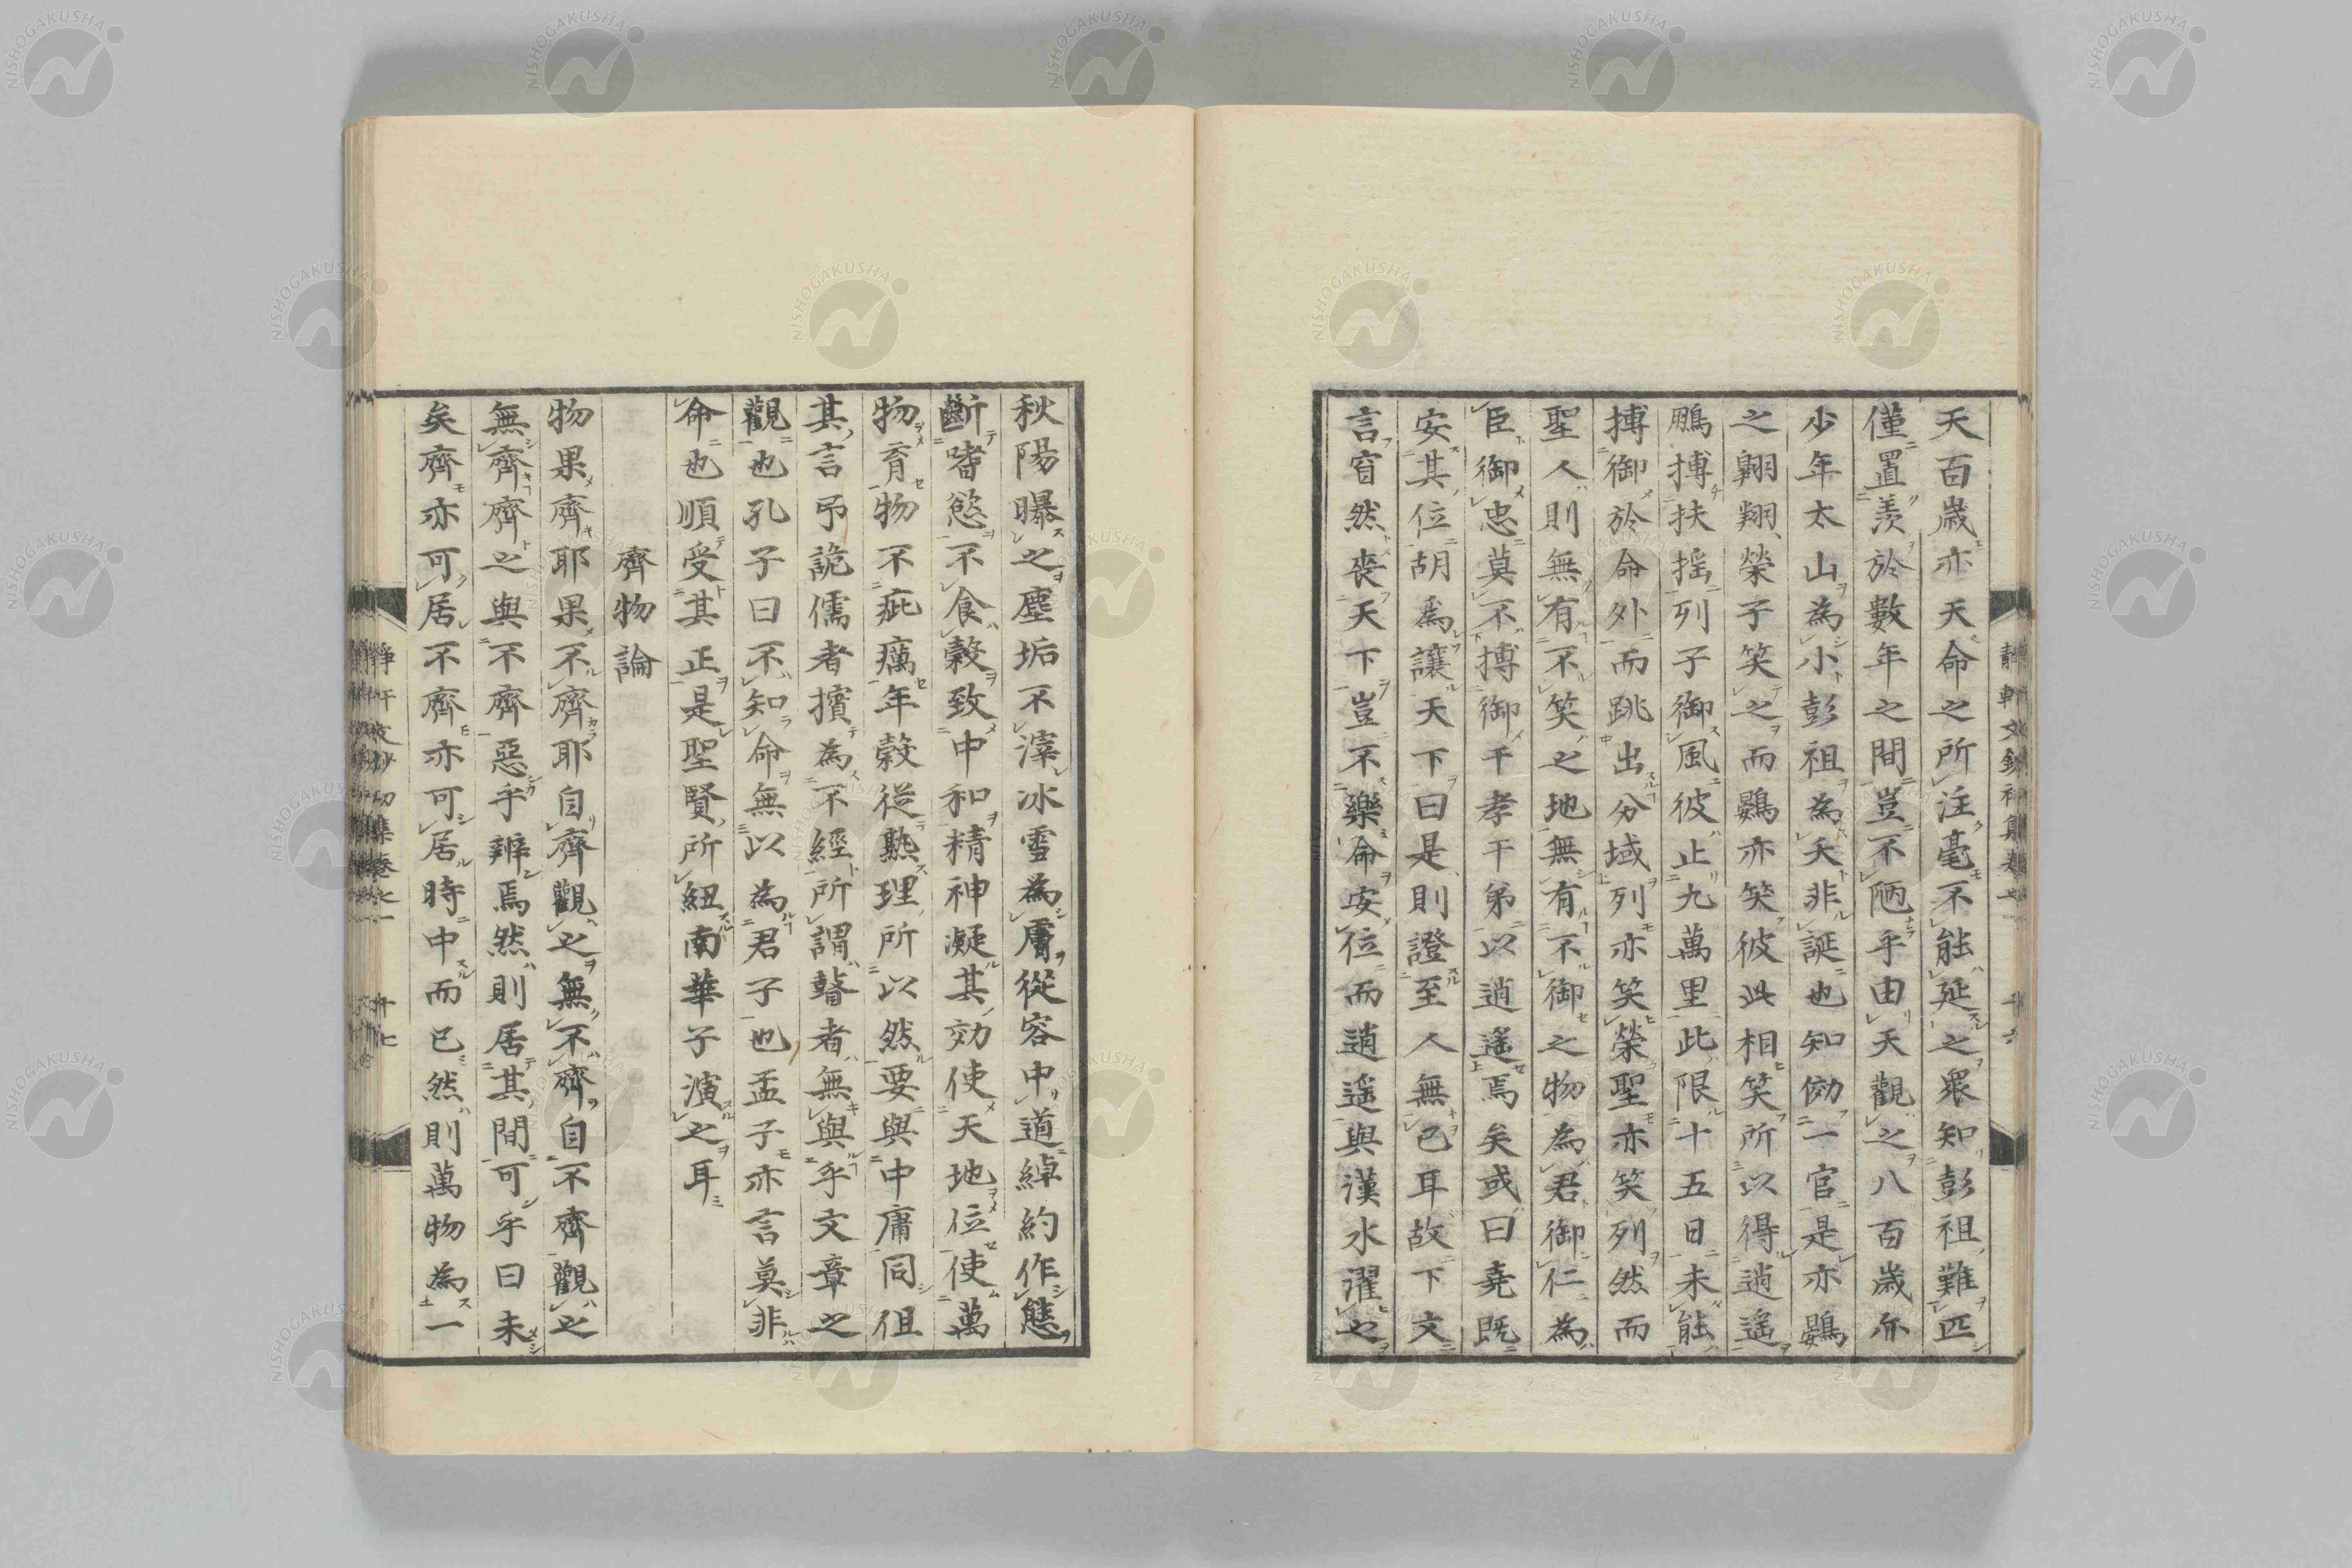 天百歳亦天命之所注毫不能延之衆知彭祖難匹
僅置羨於數年之間豈不陋乎由天觀之八百歳亦
少年太山為小彭祖為夭非誕也知効一官是亦鷃
之翺翔榮子笑之而鷃亦笑彼此相笑所以得逍遙
鵬搏扶搖列子御風彼止九萬里此限十五日未能
搏御於命外而跳出分域列亦笑榮聖亦笑列然而
聖人則無有不笑之地無有不御之物為君御仁為
臣御忠莫不搏御于孝于弟以逍遙焉矣或曰堯既
安其位胡爲讓天下曰是則證至人無己耳故下文
言窅然喪天下豈不樂命安位而逍遙與漢水濯之
秋陽曝之塵垢不滓冰雪為膚從容中道綽約作態
斷嗜慾不食穀致中和精神凝其効使天地位使萬
物育物不疵癘年穀從熟理所以然要與中庸同但
其言弔詭儒者擯為不經所謂瞽者無與乎文章之
觀也孔子曰不知命無以為君子也孟子亦言莫非
命也順受其正是聖賢所紐南華子演之耳
齊物論
物果齊耶果不齊耶自齊觀之無不齊自不齊觀之
無齊齊之與不齊惡乎辨焉然則居其間可乎曰未
矣齊亦可居不齊亦可居時中而已然則萬物為一
NISHOGAKUSHA